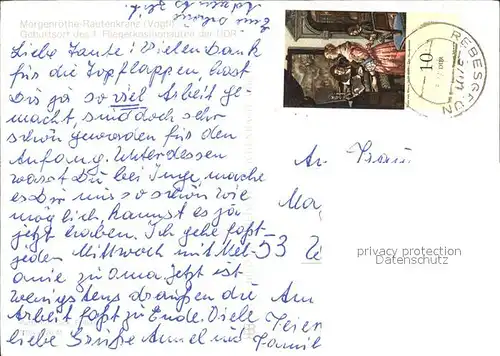 Morgenröthe-Rautenkranz (Vogtl.)
Geburtsort des 1. Fliegerkosmonauten der DDR
Liebe Tante! Vielen Dank
für die Topflappen, hast
Du ja so viel Arbeit ge-
macht, sind doch sehr
schön geworden für den
Anfang. Unterdessen
warst Du bei Inge, mache
es Dir nur so schön wie
möglich, kannst es ja
jetzt haben. Ich gehe fast
jeden Mittwoch mit Mel-
anie zu Oma. Jetzt ist
wenigstens draußen die
Arbeit fast zu Ende. Viele
liebe Grüße und
Famil
REBESGRÜN
10
DDR
An Frau
Ma
53
Am
Feier
privacy protection
Datenschutz